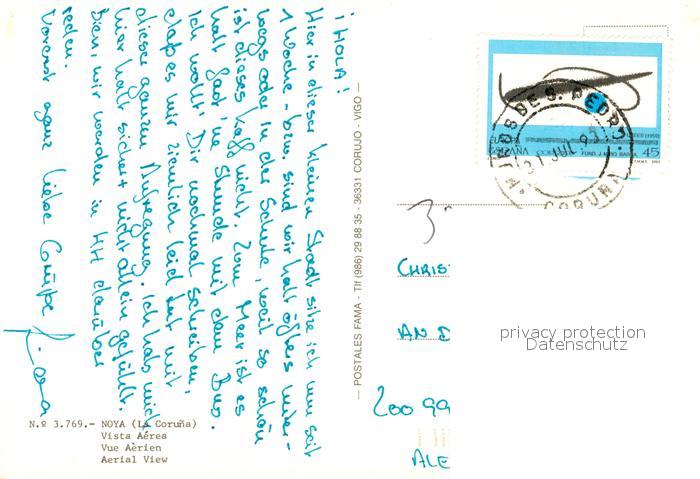 ¡HOLA!
Hier in dieser kleinen Stadt sitze ich nun seit
1 Woche - bzw. sind wir halt öfters unter-
wegs oder in der Schule, weil so schön
ist dieses Kaff nicht. Zum Meer ist es
halt grad 'ne Stunde mit dem Bus.
Ich wollt' Dir nochmal schreiben,
daß es mir ziemlich leid tut mit
dieser ganzen Aufregung. Ich hab mich
hier halt sicher nicht allein gefühlt.
Bien, wir werden in HH darüber
reden.
Vorerst ganz liebe Grüße
N.º 3.769.- NOYA (La Coruña)
Vista Aérea
Vue Aèrien
Aerial View
— POSTALES FAMA - Tlf (986) 29 88 35 - 36331 CORUJO - VIGO —
ESPAÑA
45
21 JUL 93
CORUÑA
3
CHRIS
AN D
200 99
ALE
privacy protection
Datenschutz